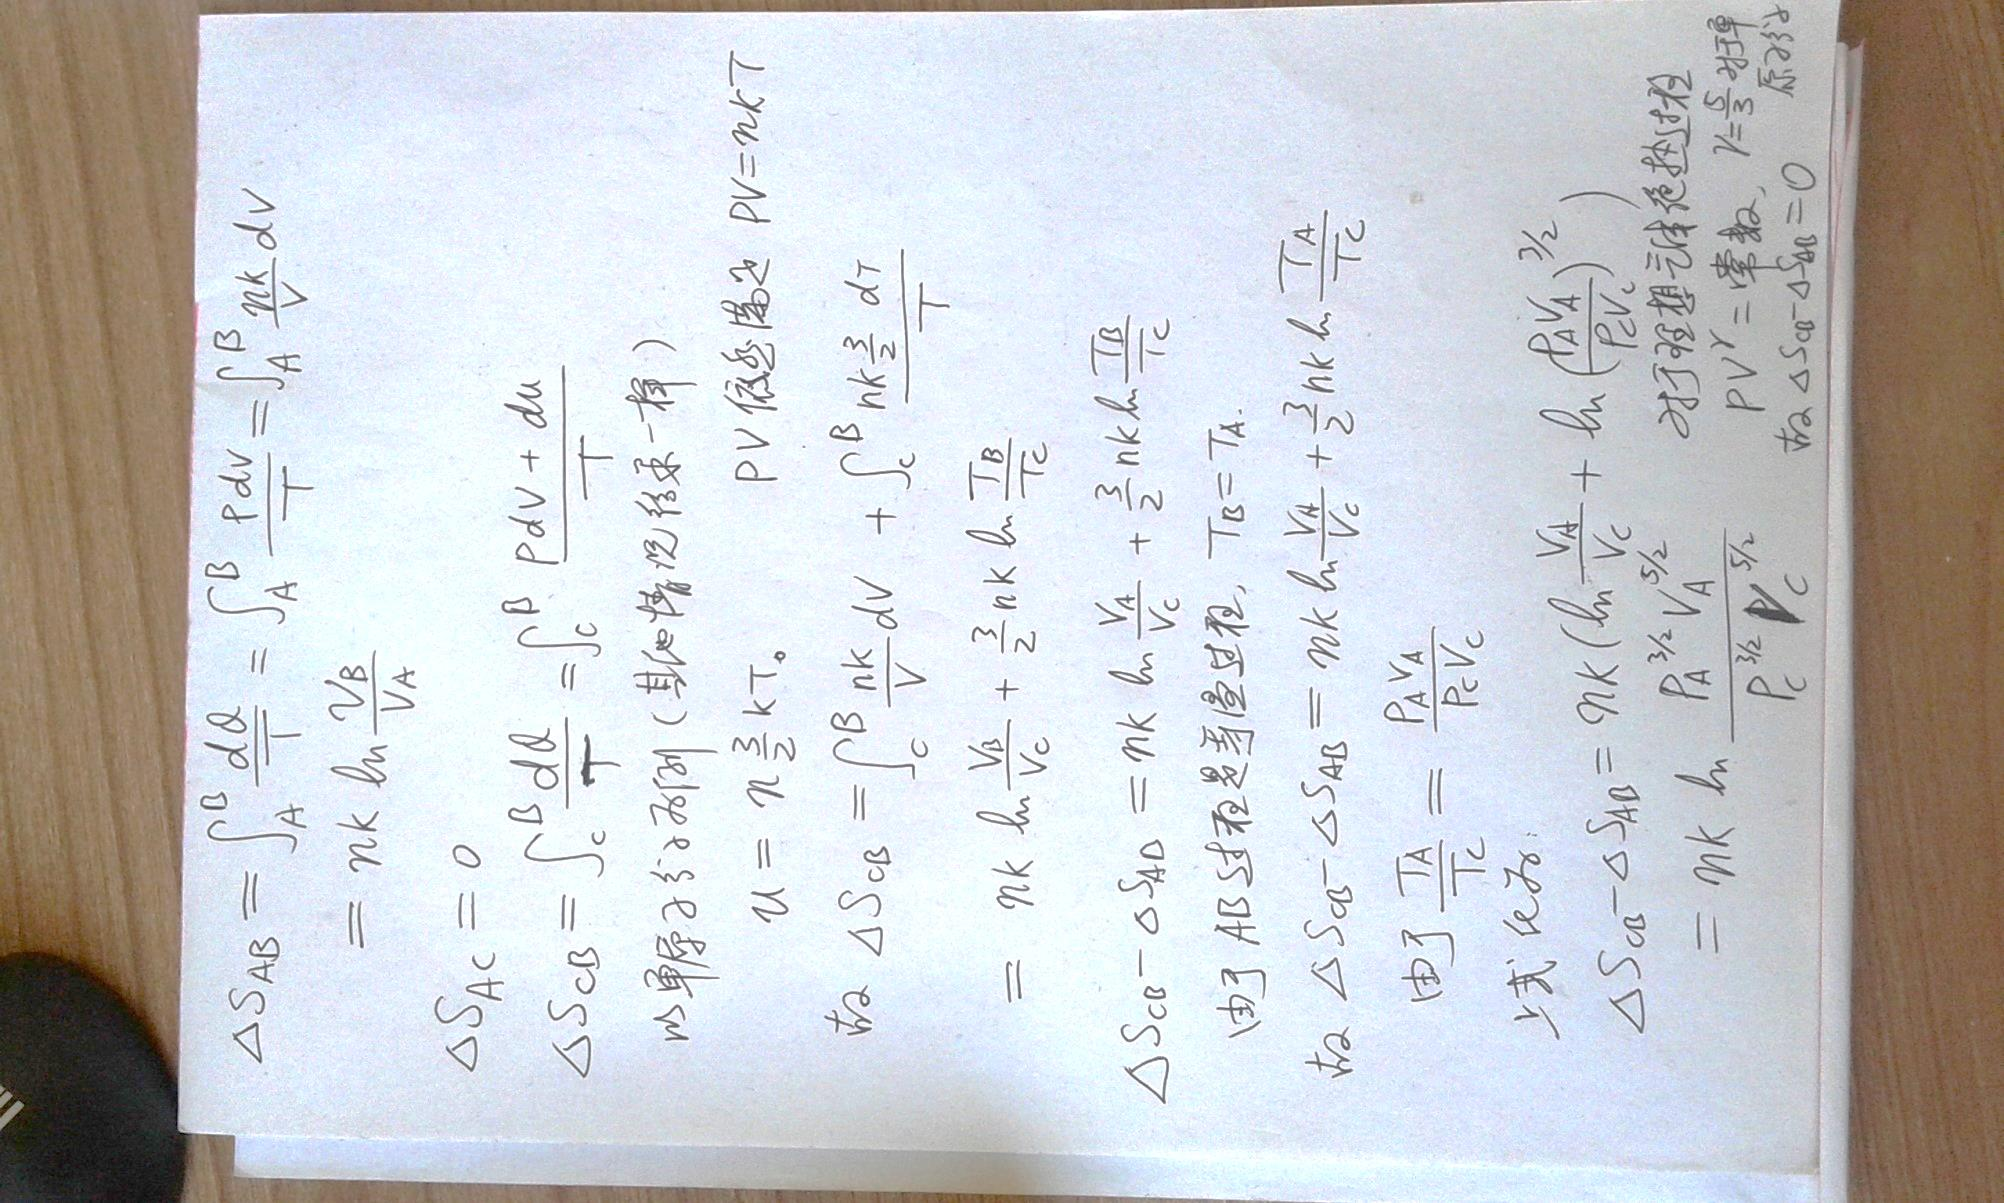 ΔS_AB = ∫_A^B dQ/T = ∫_A^B PdV/T = ∫_A^B nk/V dV
= nk ln V_B/V_A
ΔS_AC = 0
ΔS_CB = ∫_C^B dQ/T = ∫_C^B (PdV + du)/T
以单原子分子为例(其他情况结果一样)
u = n 3/2 kT。 PV依然满足 PV=nkT
故 ΔS_CB = ∫_C^B nk/V dV + ∫_C^B nk 3/2 dT/T
= nk ln V_B/V_C + 3/2 nk ln T_B/T_C
ΔS_CB - ΔS_AB = nk ln V_A/V_C + 3/2 nk ln T_B/T_C
由于AB过程是等温过程, T_B = T_A.
故 ΔS_CB - ΔS_AB = nk ln V_A/V_C + 3/2 nk ln T_A/T_C
由于 T_A/T_C = P_A V_A/P_C V_C
上式化为:
ΔS_CB - ΔS_AB = nk (ln V_A/V_C + ln (P_A V_A/P_C V_C)^3/2)
= nk ln P_A^3/2 V_A^5/2 / P_C^3/2 V_C^5/2
对于理想气体绝热过程
PV^γ = 常数, γ = 5/3 对于单
原子分子
故 ΔS_CB - ΔS_AB = 0